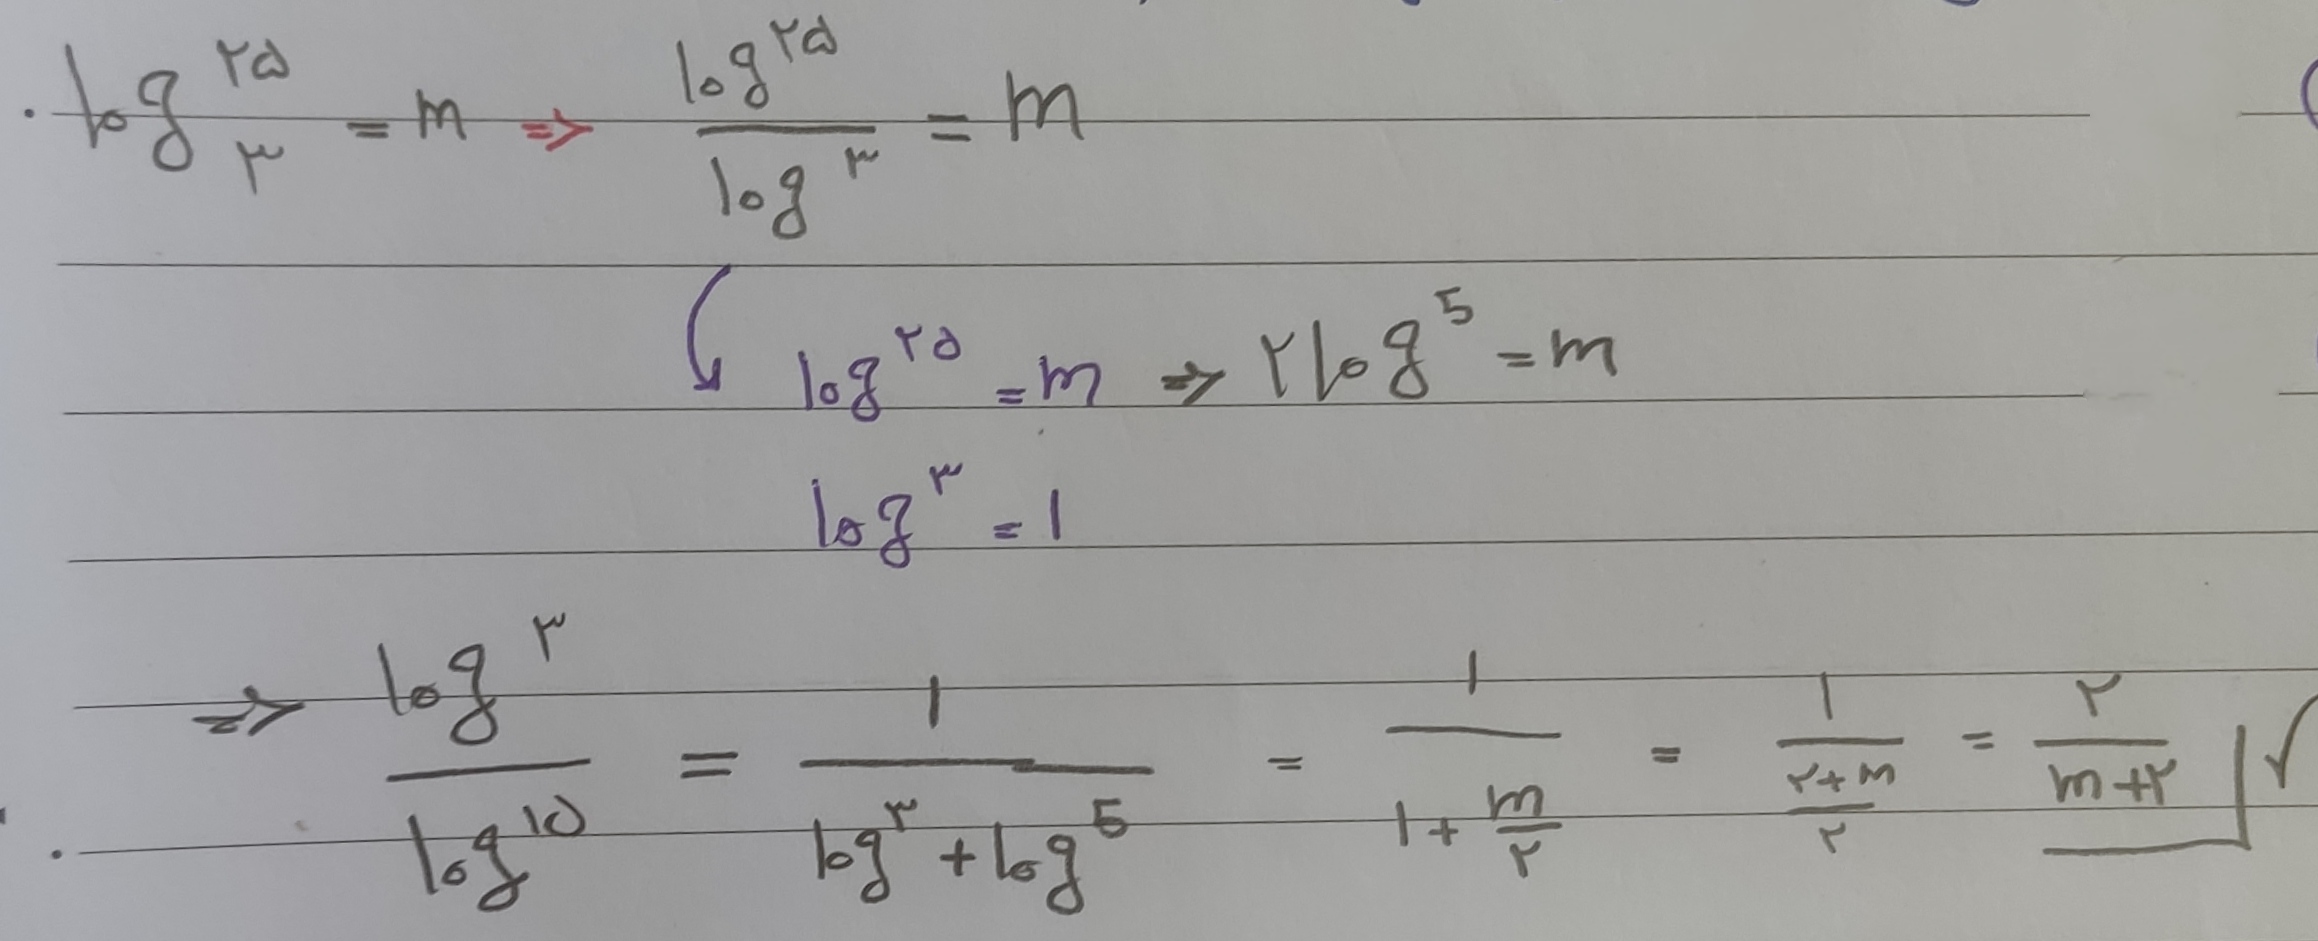 log_۳^۲۵ = m => log^۲۵ / log^۳ = m
log^۲۵ = m => ۲log^5 = m
log^۳ = 1
=> log^۳ / log^۱۵ = 1 / (log^۳ + log^5) = 1 / (1 + m/۲) = 1 / ((۲+m)/۲) = ۲ / (m+۲) ✓